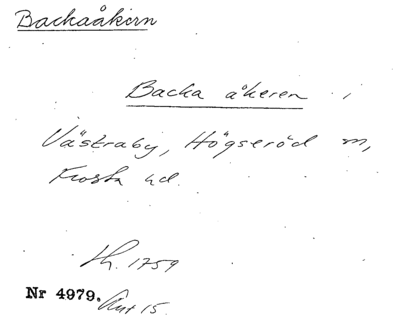 Backaåkern
Backa åkeren i
Västraby, Högseröd m,
Frosta hd.
Sk. 1759
Nr 4979. Akt 15.